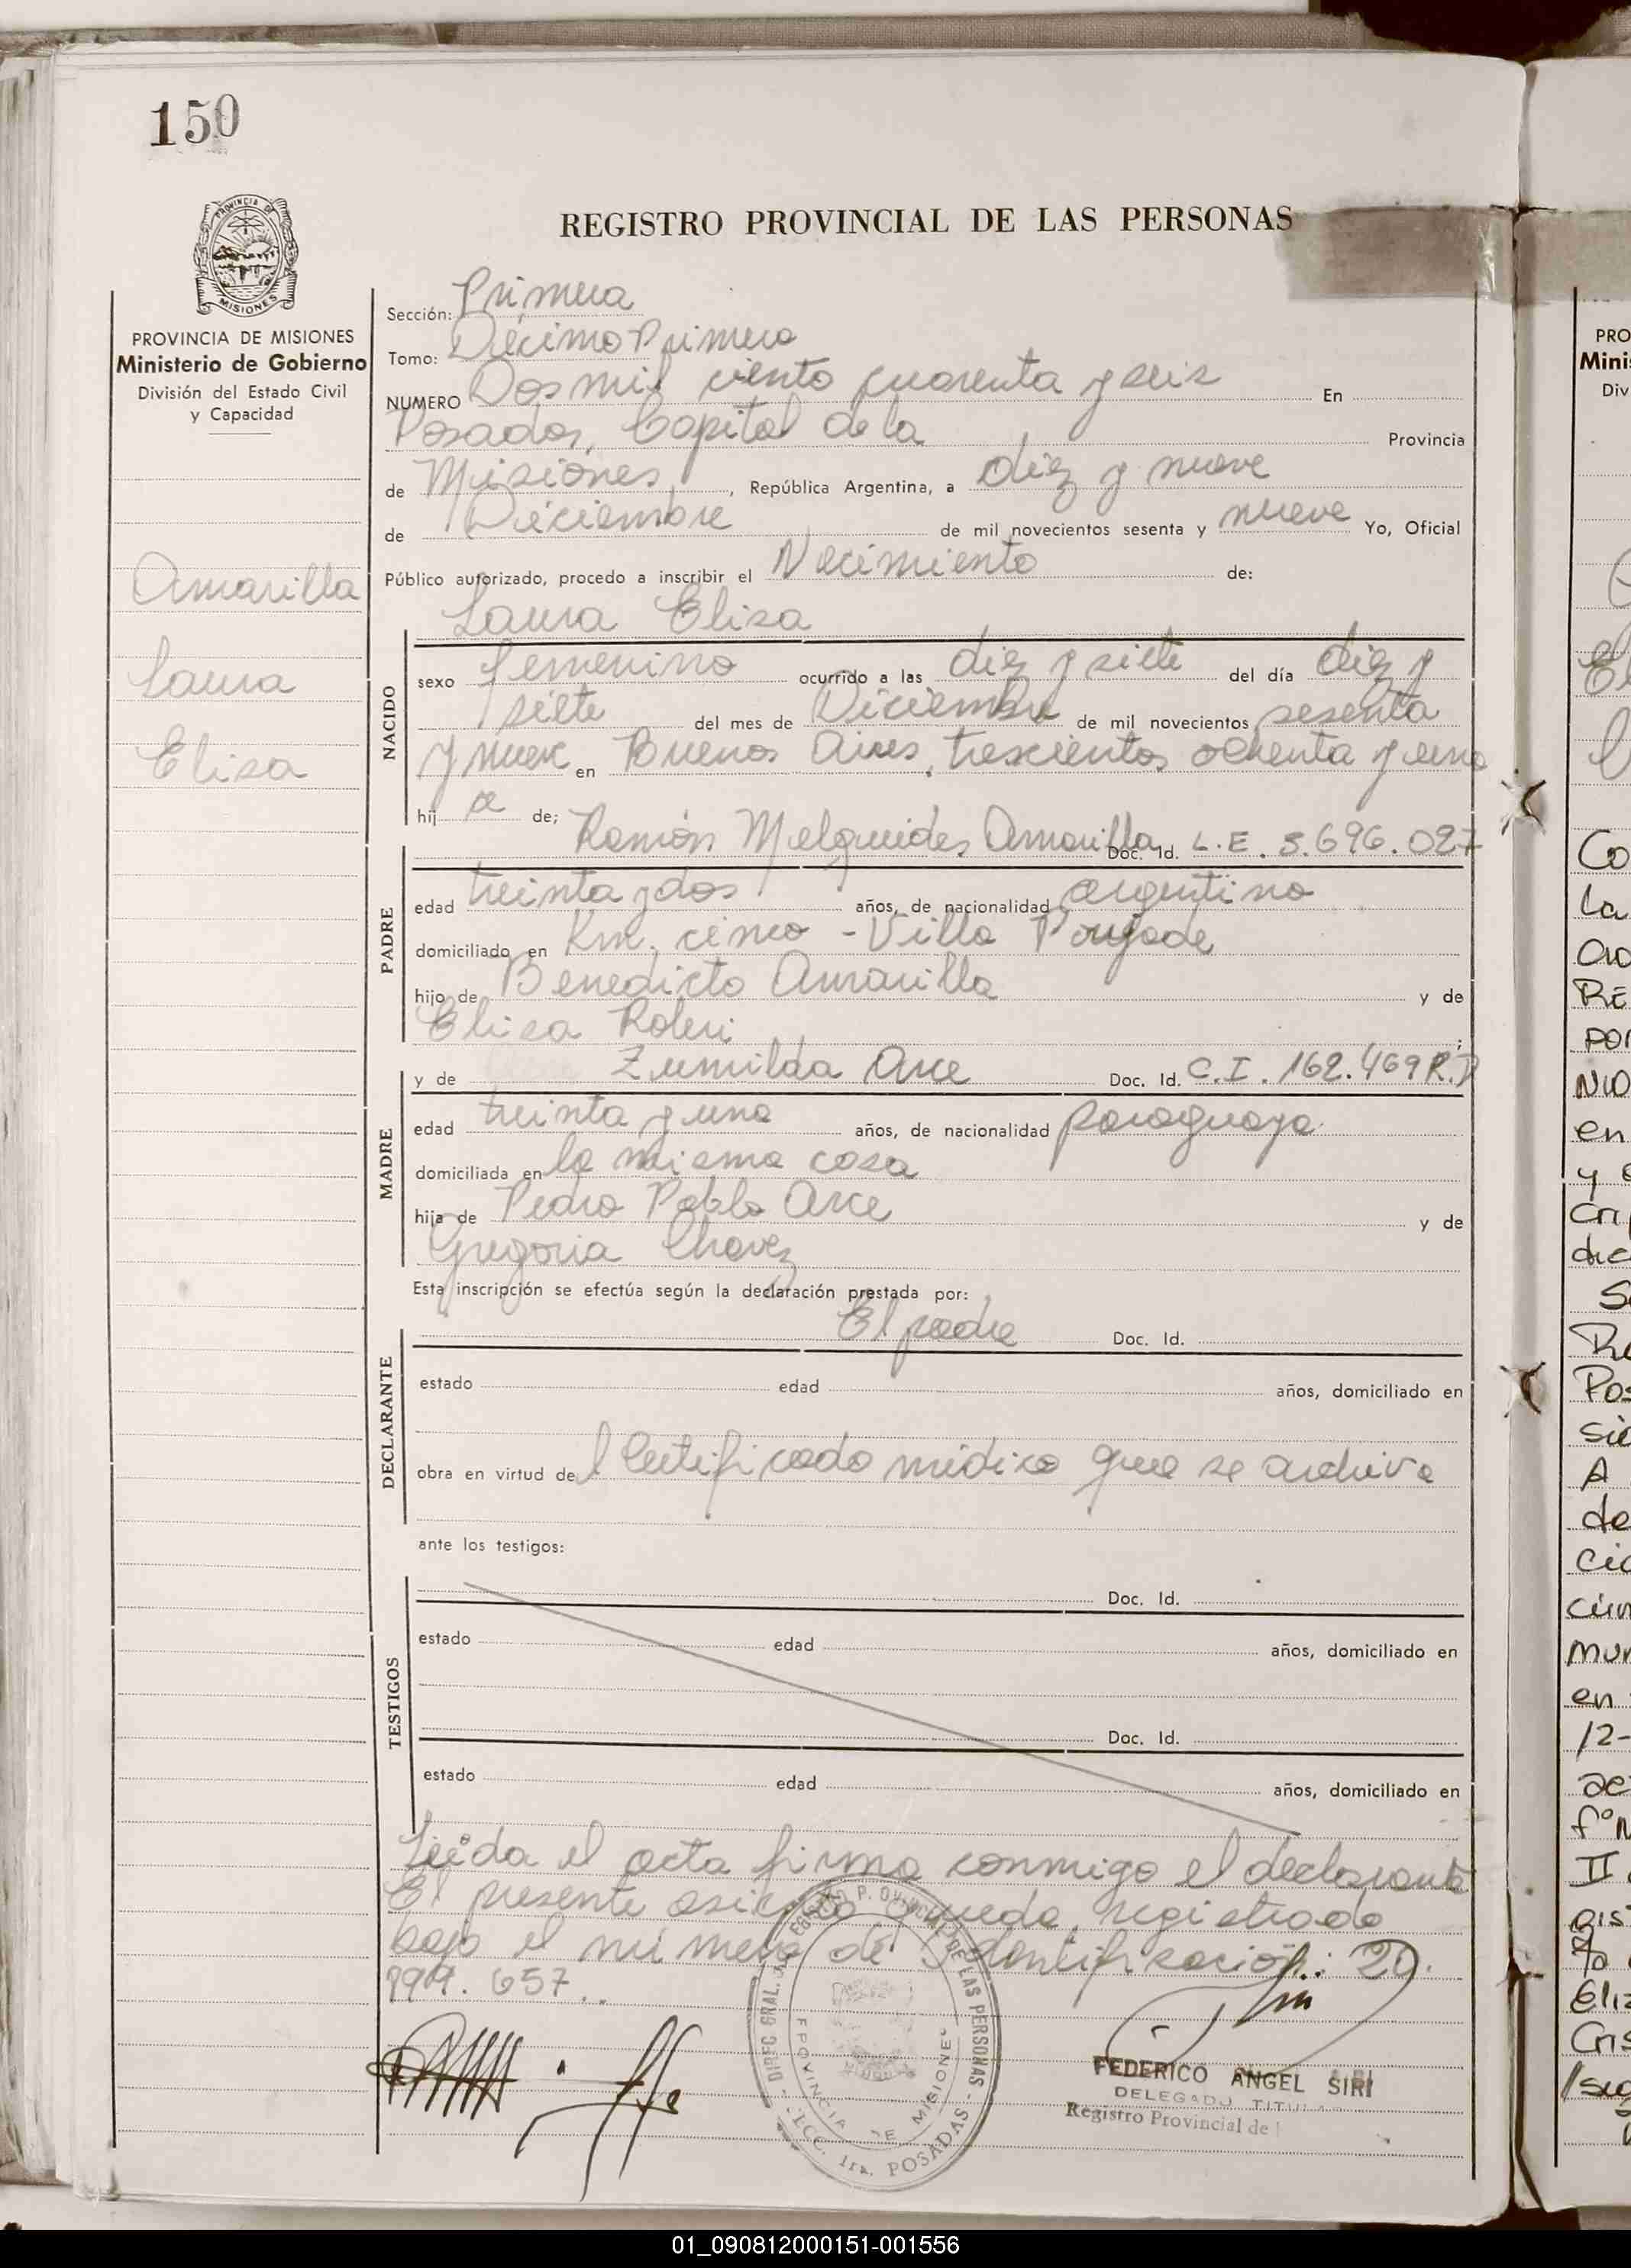 150
REGISTRO PROVINCIAL DE LAS PERSONAS
PROVINCIA DE MISIONES
PROVINCIA DE MISIONES
Ministerio de Gobierno
División del Estado Civil
y Capacidad
Amarilla
Laura
Elisa
Sección: Primera
Tomo: Décimo Primero
NUMERO Dos mil ciento cuarenta y seis En
Posadas, Capital de la Provincia
de Misiones, República Argentina, a diez y nueve
de Diciembre de mil novecientos sesenta y nueve Yo, Oficial
Público autorizado, procedo a inscribir el Nacimiento de:
Laura Elisa
NACIDO
sexo femenino ocurrido a las diez y siete del día diez y
siete del mes de Diciembre de mil novecientos sesenta
y nueve en Buenos Aires, trescientos ochenta y uno
hij a de;
Ramón Melquiades Amarilla Doc. Id. L.E. 5.696.027
PADRE
edad treinta y dos años, de nacionalidad argentino
domiciliado en Km. cinco - Villa
hijo de Benedicto Amarilla y de
Elisa
y de Zumilda Arce Doc. Id. C.I. 162.469 R.P
MADRE
edad treinta y uno años, de nacionalidad paraguaya
domiciliada en la misma casa
hija de Pedro Pablo Arce y de
Gregoria Chavez
Esta inscripción se efectúa según la declaración prestada por:
El padre Doc. Id.
DECLARANTE
estado edad años, domiciliado en
obra en virtud del Certificado médico que se archiva
ante los testigos:
Doc. Id.
TESTIGOS
estado edad años, domiciliado en
Doc. Id.
estado edad años, domiciliado en
Leída el acta firma conmigo el declarante
El presente asiento queda registrado
bajo el número de Identificación: 20.
657..
DIREC GRAL. DEL REGISTRO PROVINCIAL DE LAS PERSONAS - SECC. 1ra. POSADAS -
PROVINCIA DE MISIONES
FEDERICO ANGEL SIRI
DELEGADO TITULAR
Registro Provincial de
PRO
Minis
Div
Co
La
RE
por
en
y
Cri
dic
Pos
A
de
cia
mun
en
12-
II
Eliz
Cris
01_090812000151-001556